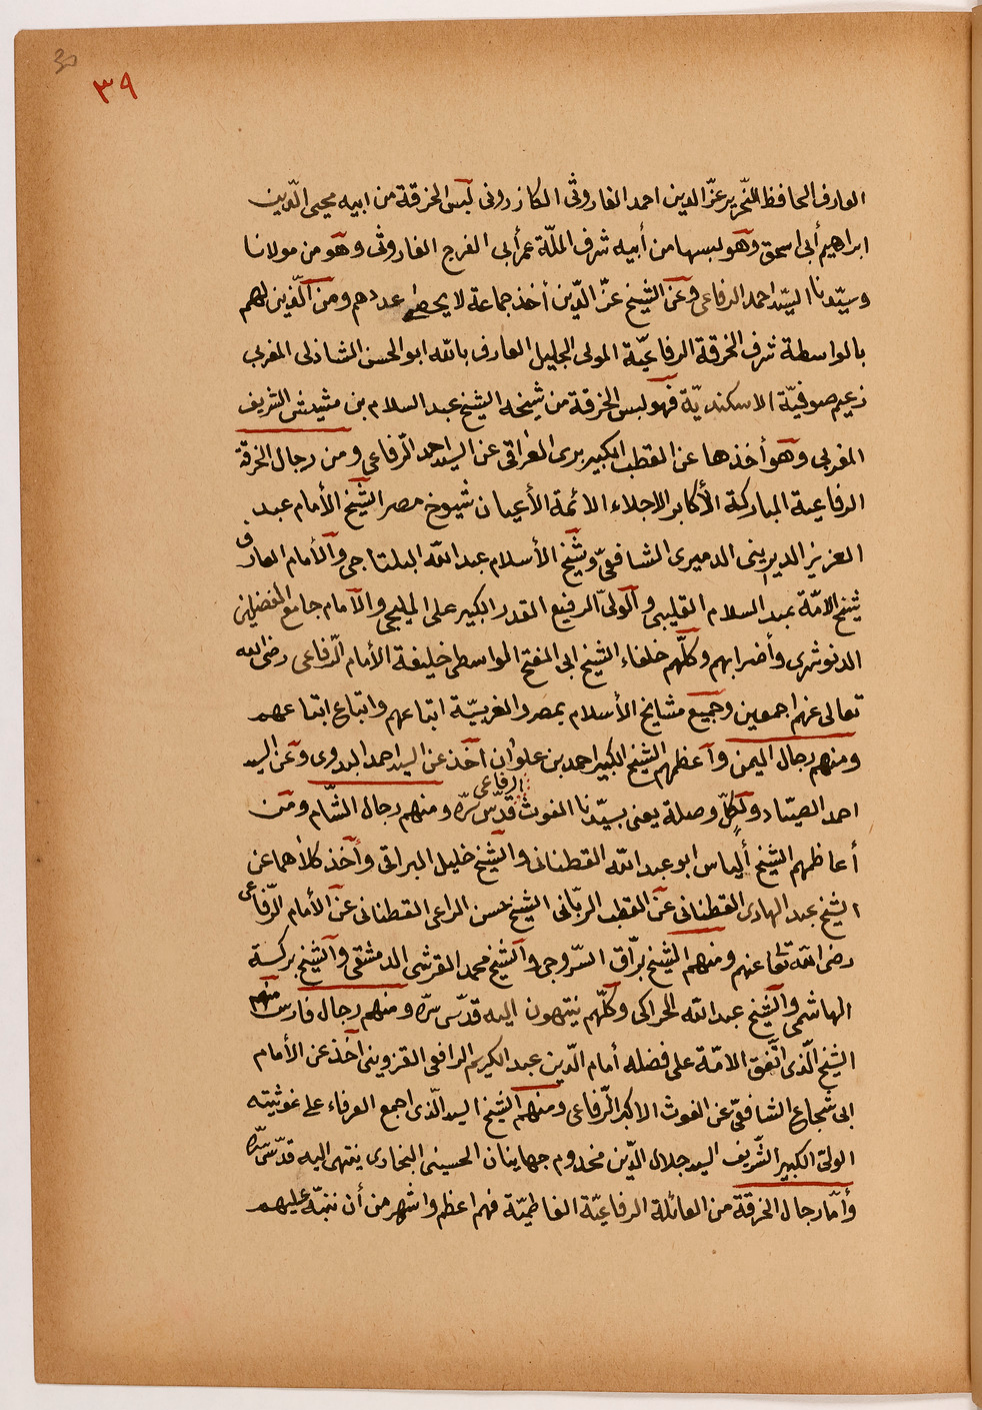 30
٣٩
العارف الحافظ النّحرير عزّ الدين احمد الفاروثى الكازرونى لبس الخرقة من ابيه محيى الدّين
ابراهيم أبى اسحق وهو لبسها من أبيه شرف الملّة عمر أبى الفرج الفاروثى وهو من مولانا
وسيّدنا السيّد احمد الرفاعى وعن الشيخ عزّ الدّين أخذ جماعة لا يحصى عددهم ومن الّذين لهم
بالواسطة شرف الخرقة الرفاعيّة المولى الجليل العارف بالله ابو الحسن الشاذلى المغربى
زعيم صوفيّة الاسكندريّة فهو لبس الخرقة من شيخه الشيخ عبد السلام بن مشيش الشريف
المغربى وهو أخذها عن القطب الكبير برى العراقى عن السيد احمد الرّفاعى ومن رجال الخرقة
الرفاعية المباركة الأكابر الاجلاء الائمة الأعيان شيوخ مصر الشيخ الأمام عبد
العزيز الديرينى الدميرى الشافعىّ وشيخ الأسلام عبد الله البلتاجى والأمام العارف
شيخ الامّة عبد السلام القليبى والولىّ الرفيع القدر الكبير على المليجى والامام جامع الفضيلين
الدنوشرى وأضرابهم وكلّهم خلفاء الشيخ ابى الفتح الواسطى خليفة الأمام الرّفاعى رضى الله
تعالى عنهم اجمعين وجميع مشايخ الأسلام بمصر والغربيّة اتباعهم واتباع اتباعهم
ومنهم رجال اليمن وآعظمهم الشيخ الكبير احمد بن علوان اخذ عن السيد احمد البدوى وعن السيد
احمد الصيّاد ولكلّ وصلة يعنى بسيّدنا الغوث الرفاعى قدّس سرّه ومنهم رجال الشّام ومن
أعاظمهم الشيخ أليماس ابو عبد الله القطنانى والشيخ خليل البراقى وآخذ كلاهما عن
الشيخ عبد الهادى القطنانى عن القطب الربّانى الشيخ حسن الراعى القطنانى عن الأمام الرّفاعى
رضى الله تعا عنهم ومنهم الشيخ برّاق السّروجى والشيخ محمد القرشى الدمشقى والشيخ بركسة
الهاشمى والشيخ عبد الله الحراكى وكلّهم ينتهون اليه قدّس سرّه ومنهم رجال فارس منهم
الشيخ الّذى اتّفق الامّة على فضله أمام الدّين عبد الكريم الرافعى القزوينى اخذ عن الأمام
ابى شجاع الشافعىّ عن الغوث الاكبر الرّفاعى ومنهم الشيخ السيد الّذى اجمع العرفاء على غوثيته
الولىّ الكبير الشّريف السيد جلال الدّين مخدوم جهانيان الحسينى البخارى ينتهى اليه قدّس سرّه
وأمّا رجال الخرقة من العائلة الرفاعيّة الفاطميّة فهم اعظم واشهر من أن ننبّه عليهم